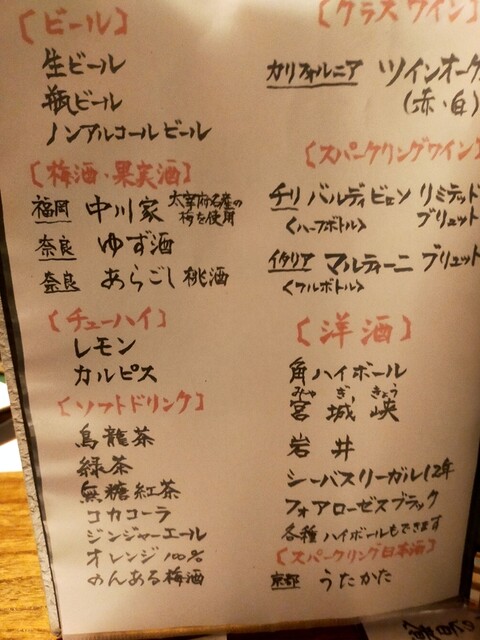 【ビール】
生ビール
瓶ビール
ノンアルコールビール
【梅酒・果実酒】
福岡 中川家 太宰府名産の
梅を使用
奈良 ゆず酒
奈良 あらごし桃酒
【チューハイ】
レモン
カルピス
【ソフトドリンク】
烏龍茶
緑茶
無糖紅茶
コカコーラ
ジンジャーエール
オレンジ100%
のんある梅酒
【グラスワイン】
カリフォルニア ツインオーク
(赤・白)
【スパークリングワイン】
チリ バルディビェソ リミテッド
<ハーフボトル> ブリュット
イタリア マルティーニ ブリュット
<フルボトル>
【洋酒】
角ハイボール
みや ぎ きょう
宮城峡
岩井
シーバスリーガル12年
フォアローゼスブラック
各種ハイボールもできます
【スパークリング日本酒】
京都 うたかた